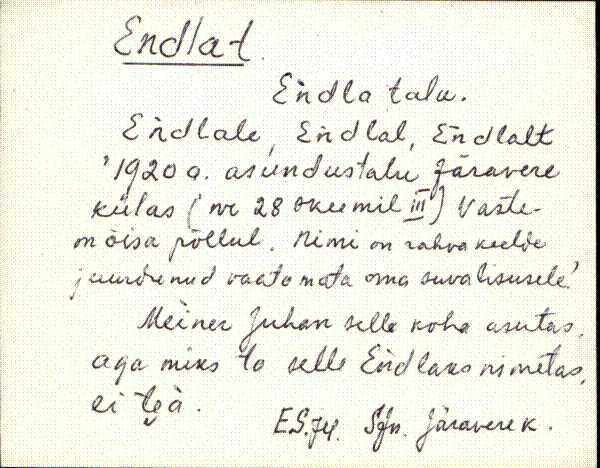 Endlat.
Endla talu.
Endlale, Endlal, Endlalt
'1920 a. asundustalu Järavere
külas (nr 28 skeemil III) Vaste-
mõisa põllul. Nimi on rahvakeelde
juurdunud vaatamata oma suvalisusele.'
Meiner Juhan selle koha asutas,
aga miks ta selle Endlaks nimetas,
ei tea.
Järavere k.